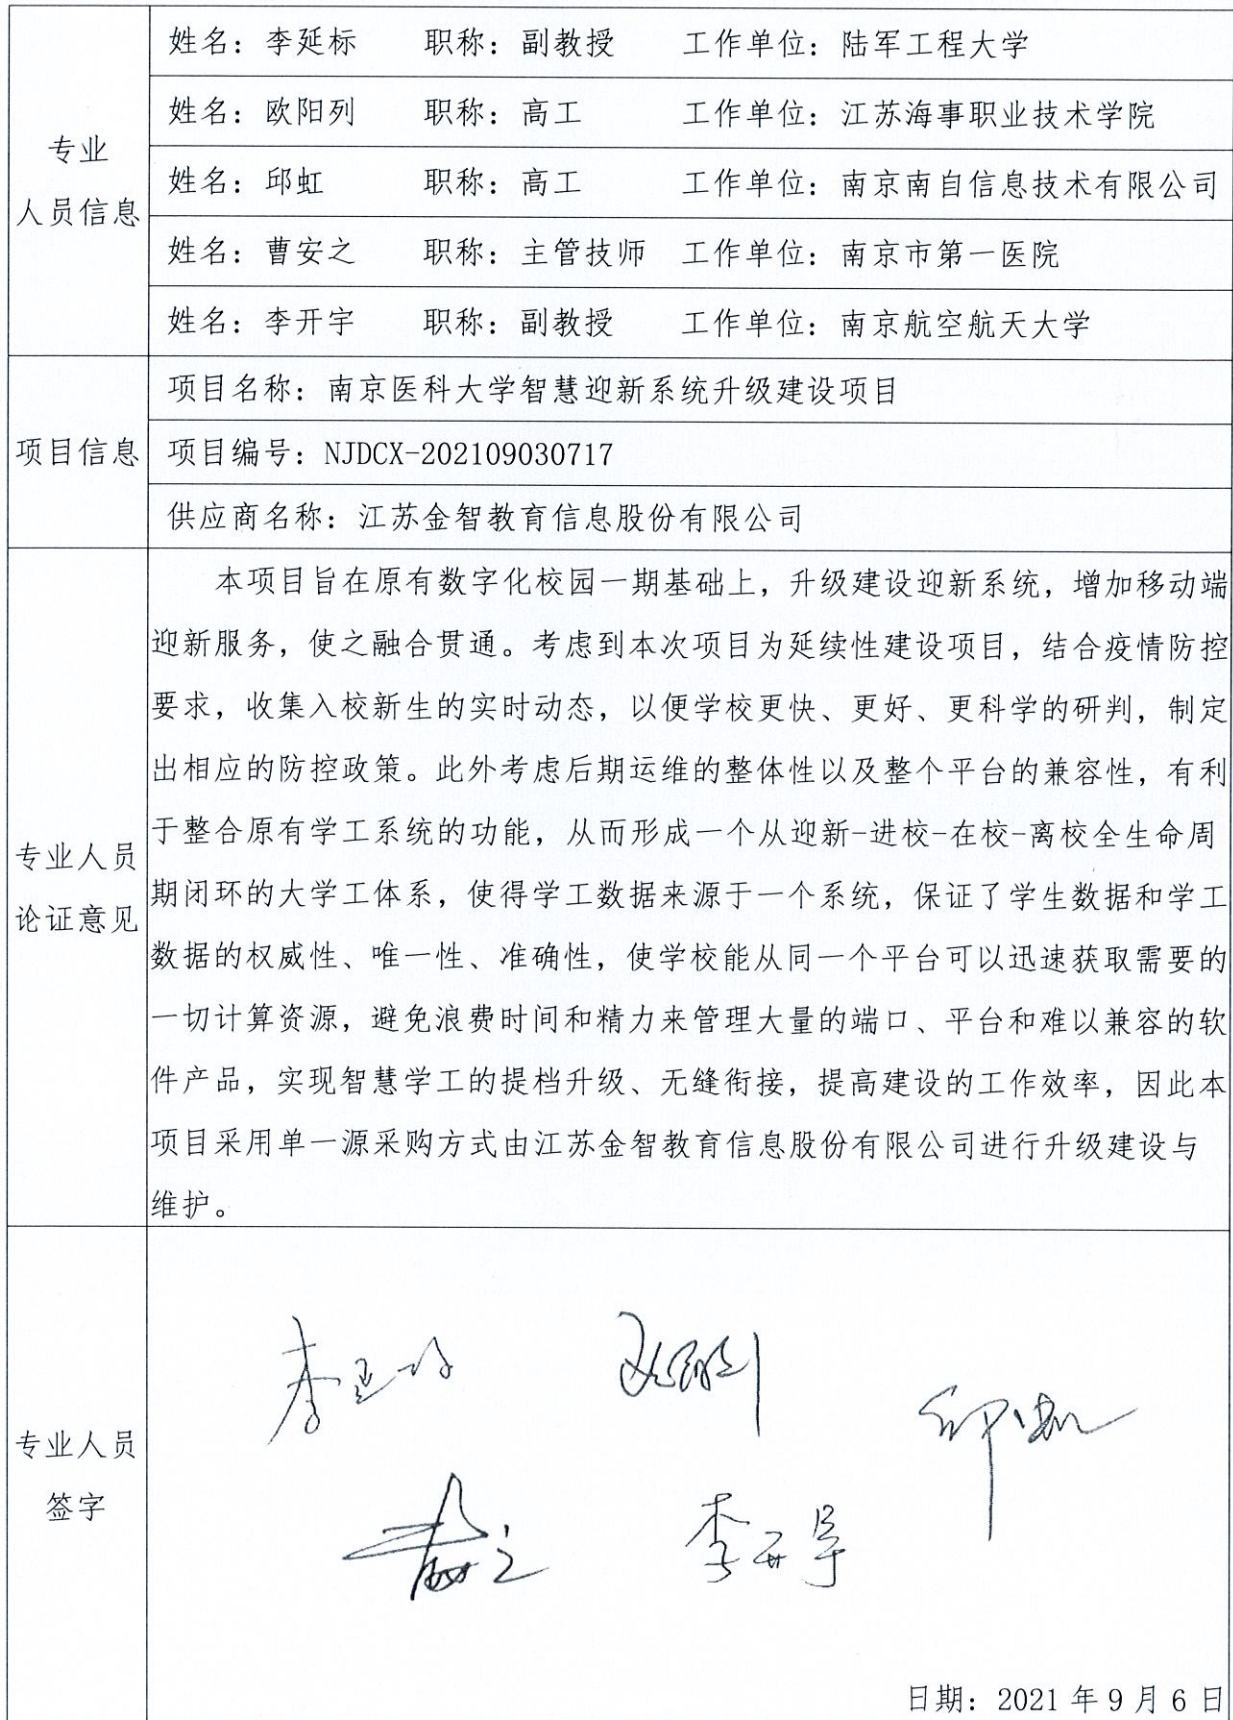 专业
人员信息
姓名：李延标 职称：副教授 工作单位：陆军工程大学
姓名：欧阳列 职称：高工 工作单位：江苏海事职业技术学院
姓名：邱虹 职称：高工 工作单位：南京南自信息技术有限公司
姓名：曹安之 职称：主管技师 工作单位：南京市第一医院
姓名：李开宇 职称：副教授 工作单位：南京航空航天大学
项目信息
项目名称：南京医科大学智慧迎新系统升级建设项目
项目编号：NJDCX-202109030717
供应商名称：江苏金智教育信息股份有限公司
专业人员
论证意见
本项目旨在原有数字化校园一期基础上，升级建设迎新系统，增加移动端
迎新服务，使之融合贯通。考虑到本次项目为延续性建设项目，结合疫情防控
要求，收集入校新生的实时动态，以便学校更快、更好、更科学的研判，制定
出相应的防控政策。此外考虑后期运维的整体性以及整个平台的兼容性，有利
于整合原有学工系统的功能，从而形成一个从迎新-进校-在校-离校全生命周
期闭环的大学工体系，使得学工数据来源于一个系统，保证了学生数据和学工
数据的权威性、唯一性、准确性，使学校能从同一个平台可以迅速获取需要的
一切计算资源，避免浪费时间和精力来管理大量的端口、平台和难以兼容的软
件产品，实现智慧学工的提档升级、无缝衔接，提高建设的工作效率，因此本
项目采用单一源采购方式由江苏金智教育信息股份有限公司进行升级建设与
维护。
专业人员
签字
李延标 欧阳列 邱虹
曹安之 李开宇
日期：2021年9月6日